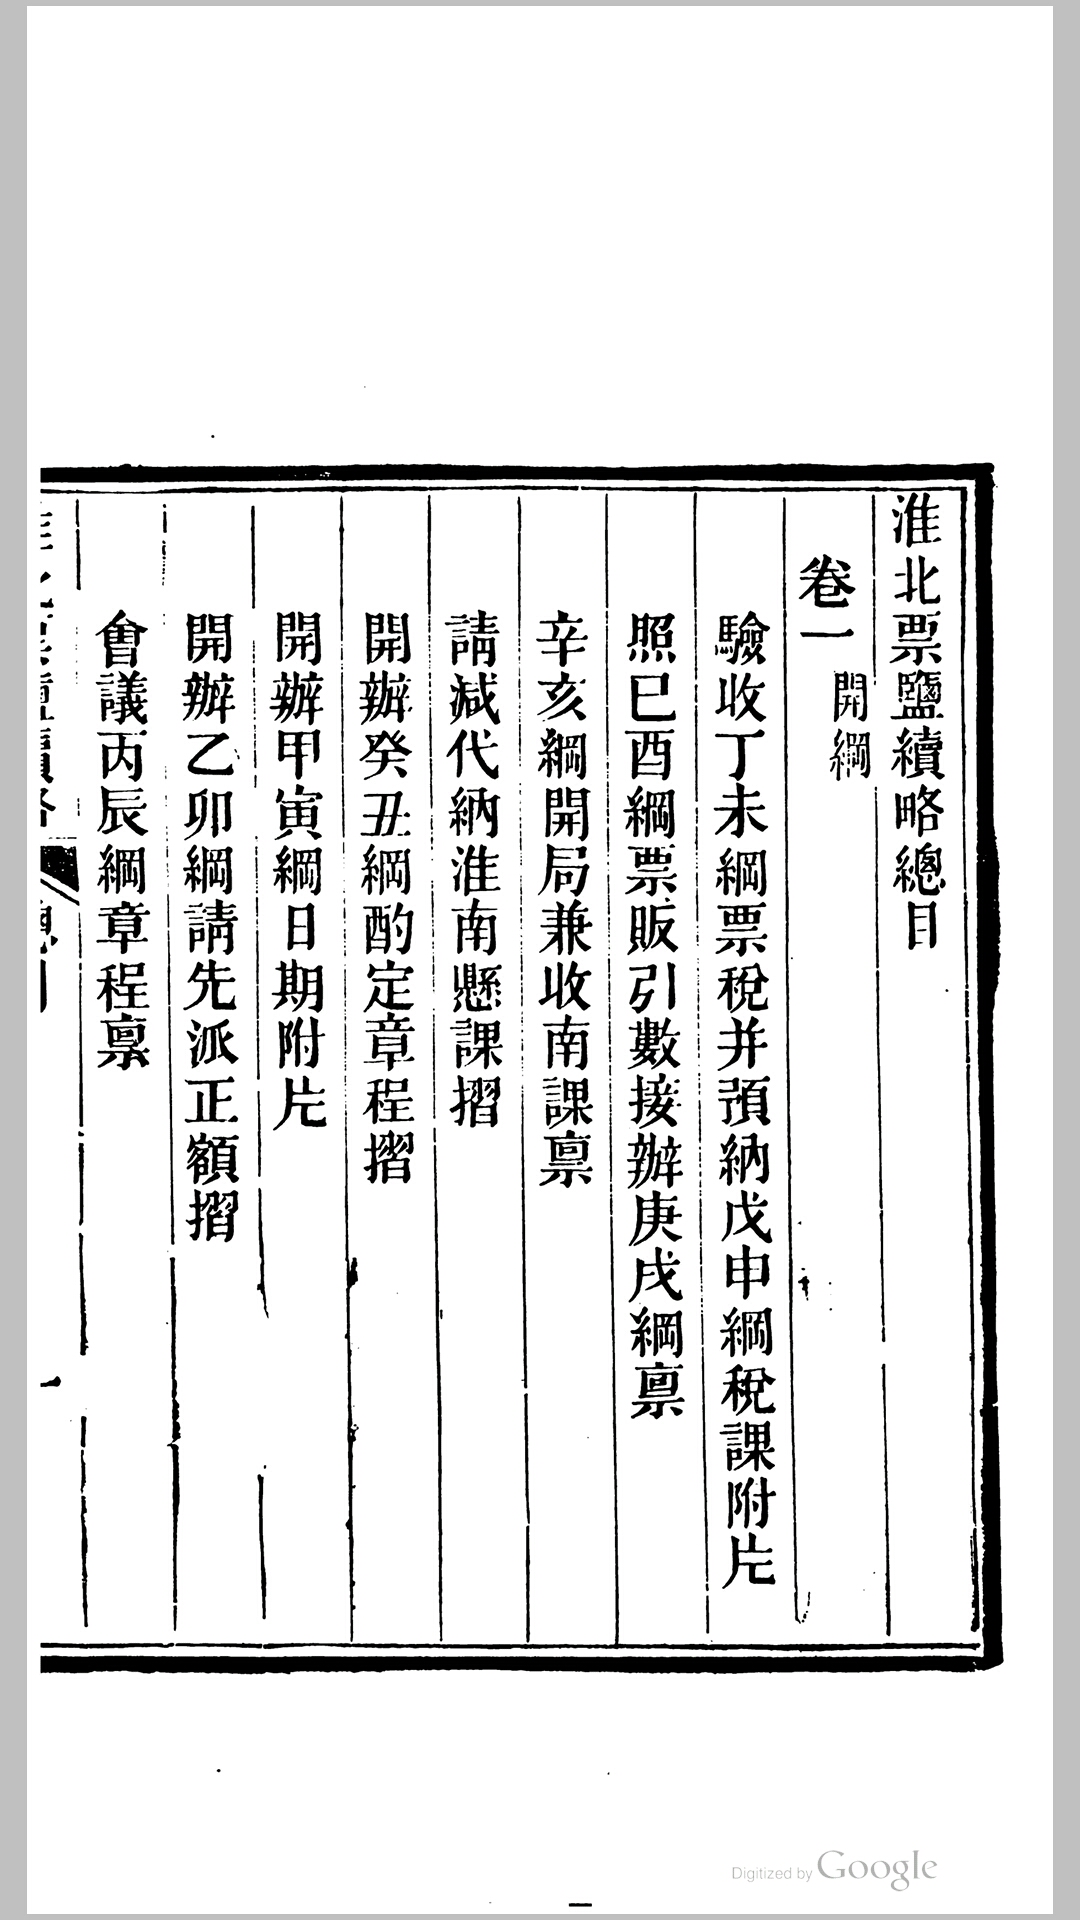 淮北票鹽續略總目
卷一 開綱
驗收丁未綱票稅并預納戊申綱稅課附片
照已酉綱票販引數接辦庚戌綱稟
辛亥綱開局兼收南課稟
請減代納淮南懸課摺
開辦癸丑綱酌定章程摺
開辦甲寅綱日期附片
開辦乙卯綱請先派正額摺
會議丙辰綱章程稟
Digitized by Google